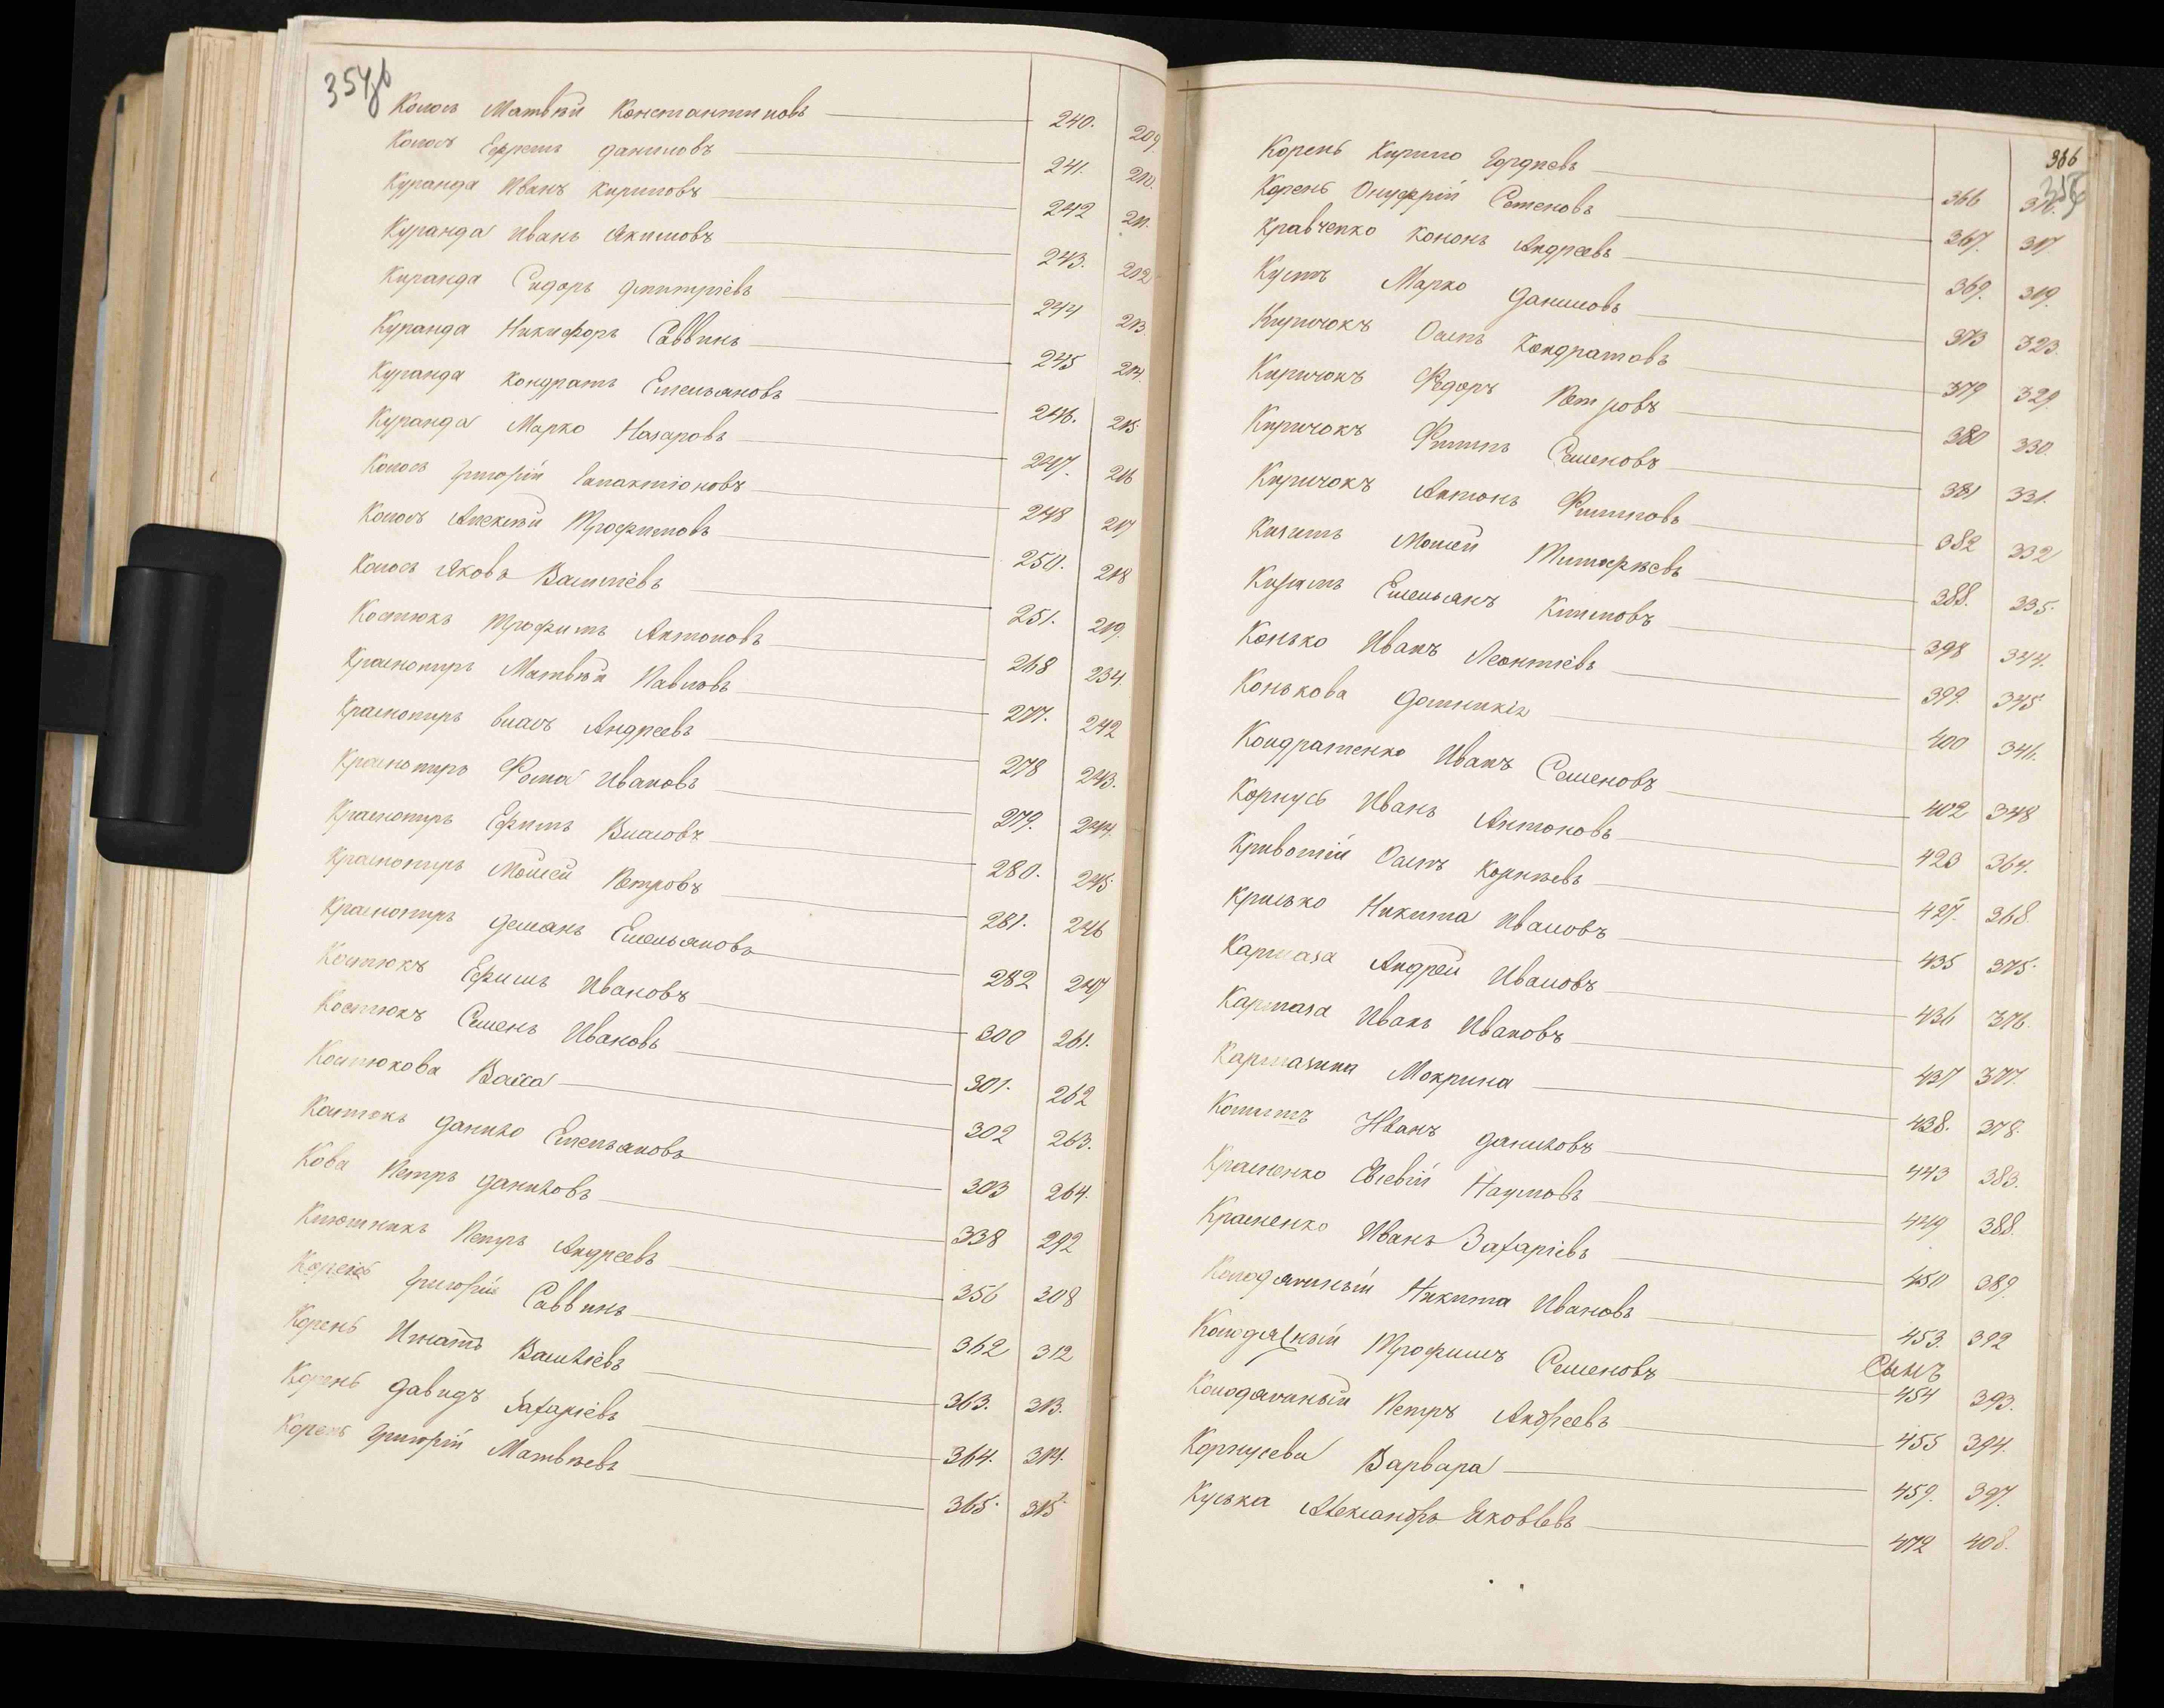 Колосъ Матвѣй Константиновъ 240. 209
Колосъ Ефремъ Даниловъ 241. 210.
Куранда Иванъ Кириловъ 242 211.
Куранда Иванъ Акимовъ 243. 212
Куранда Сидоръ Дмитріевъ 244 213.
Куранда Никифоръ Саввинъ 245 214.
Куранда Кондратъ Емельяновъ 246. 215
Куранда Марко Назаровъ 247. 216
Колосъ Григорій Галактіоновъ 248 217
Колосъ Алексѣй Трофимовъ 250. 218
Колосъ Яковъ Василіевъ 251. 219.
Костюкъ Трофимъ Антоновъ 268 234.
Краснопиръ Матвѣй Павловъ 277. 242
Краснопиръ Власъ Андреевъ 278 243.
Краснопиръ Фома Ивановъ 279. 244.
Краснопиръ Ефимъ Власовъ 280. 245
Краснопиръ Мойсей Петровъ 281. 246
Краснопиръ Демянъ Емельяновъ 282 247
Костюкъ Ефимъ Ивановъ 300 261.
Костюкъ Семенъ Ивановъ 301. 262
Костюкова Васса 302 263.
Костюкъ Данило Емельяновъ 303 264.
Кова Петръ Даниловъ 338 292
Ключникъ Петръ Андреевъ 356 308
Корень Григорій Саввинъ 362 312
Корень Игнатъ Василіевъ 363. 313.
Корень Давидъ Захаріевъ 364. 314.
Корень Григорій Матвѣевъ 365. 315.
366
Корень Кирило Гордѣевъ 366 316.
Корень Онуфрій Семеновъ 367. 317
Кравченко Кононъ Андреевъ 369. 319.
Марко Даниловъ 373 323.
Киричокъ Осипъ Кондратовъ 379 329.
Киричокъ Федоръ Петровъ 380 330.
Киричокъ Филипъ Семеновъ 381 331.
Киричокъ Антонъ Филиповъ 382 332
Кизимъ Мойсей Тимофѣевъ 388. 335.
Кизимъ Емельянъ Климовъ 398 344.
Конько Иванъ Леонтіевъ 399. 345
Конькова Домникія 400 346.
Кондратенко Иванъ Семеновъ 402 348
Корнусь Иванъ Антоновъ 423 364.
Кривошій Осипъ Корнѣевъ 427. 368.
Крисько Никита Ивановъ 435 375.
Кармаза Андрей Ивановъ 436 376.
Кармаза Иванъ Ивановъ 437 377.
Кармазина Мокрина 438. 378.
Иванъ Даниловъ 443 383.
Красненко Евсевій Наумовъ 449 388.
Красненко Иванъ Захаріевъ 450 389.
Колодяжный Никита Ивановъ 453. 392
Колодяжный Трофимъ Семеновъ Сынъ 454 393.
Колодяжный Петръ Андреевъ 455 394.
Корнусева Варвара 459. 397.
Куська Александръ Яковлевъ 472 408.